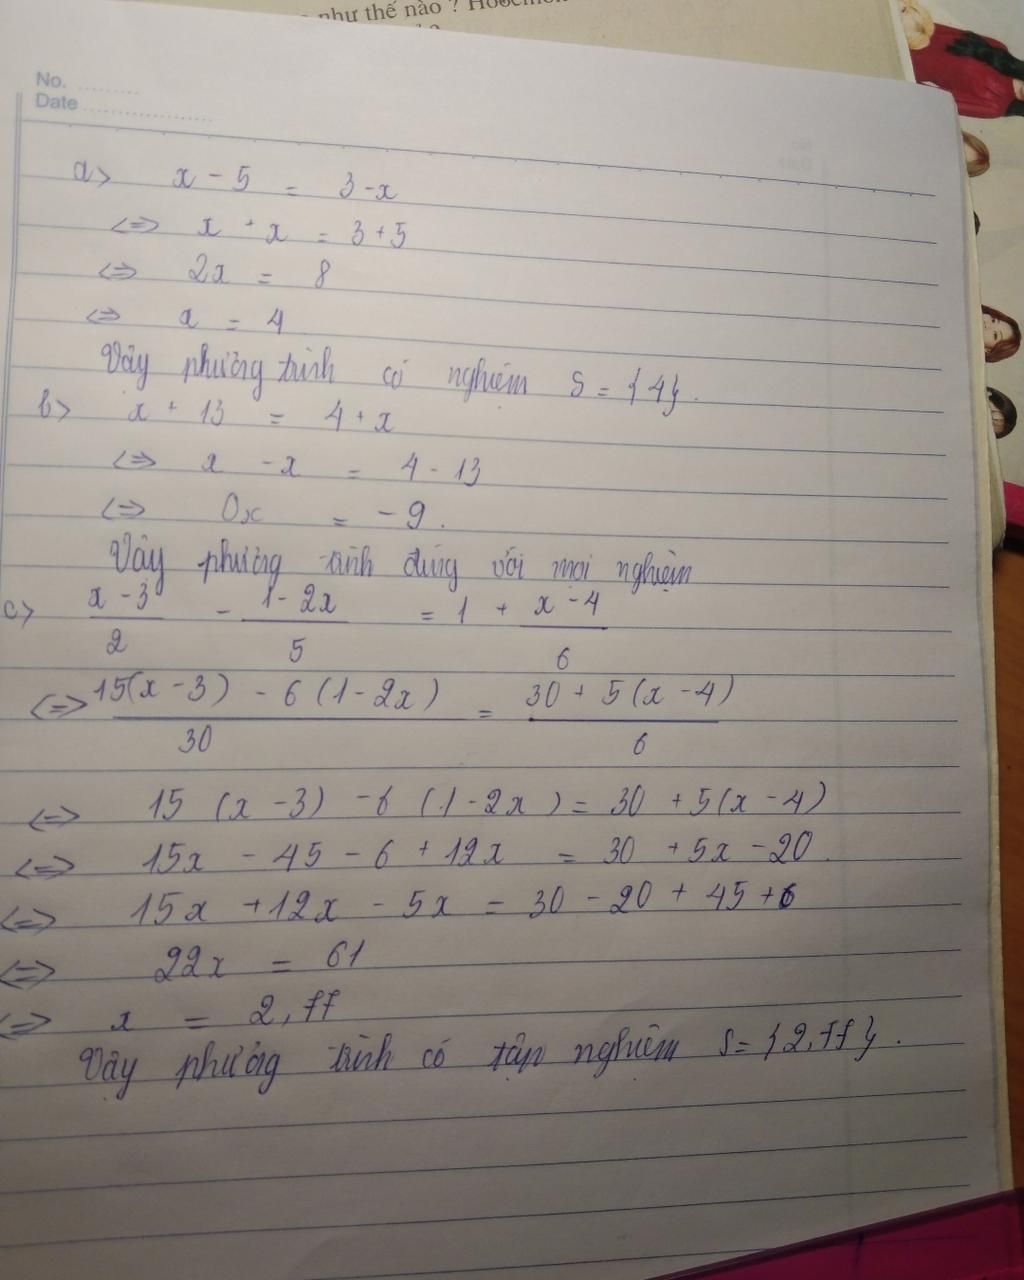 như thế nào ?
No. ..........
Date ....................
a> x - 5 = 3 - x
<=> x + x = 3 + 5
<=> 2x = 8
<=> x = 4
Vậy phương trình có nghiệm S = {4}.
b> x + 13 = 4 + x
<=> x - x = 4 - 13
<=> 0x = - 9.
Vậy phương trình đúng với mọi nghiệm
c> (x - 3)/2 - (1 - 2x)/5 = 1 + (x - 4)/6
<=> (15(x - 3) - 6(1 - 2x))/30 = (30 + 5(x - 4))/6
<=> 15(x - 3) - 6(1 - 2x) = 30 + 5(x - 4)
<=> 15x - 45 - 6 + 12x = 30 + 5x - 20.
<=> 15x + 12x - 5x = 30 - 20 + 45 + 6
<=> 22x = 61
<=> x = 2,77
Vậy phương trình có tập nghiệm S = {2,77}.